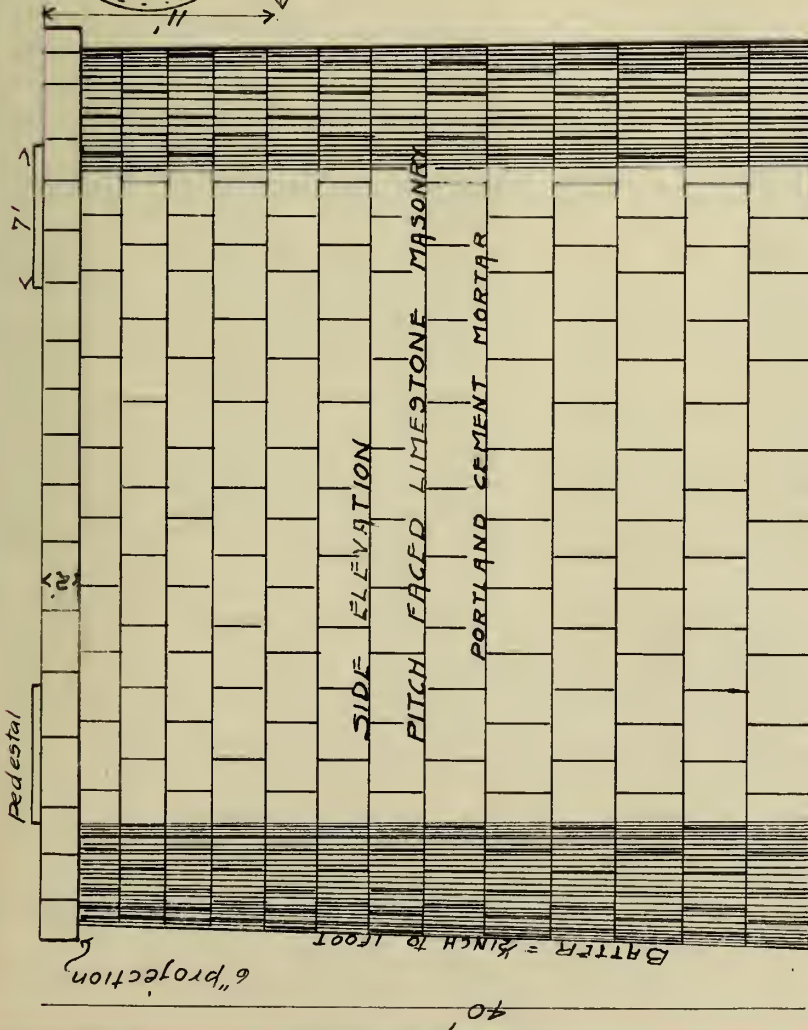 11'
7'
SIDE ELEVATION
PITCH FACED LIMESTONE MASONRY
PORTLAND CEMENT MORTAR
2'
Pedestal
BATTER = ½ INCH TO 1 FOOT
6" projection
40'